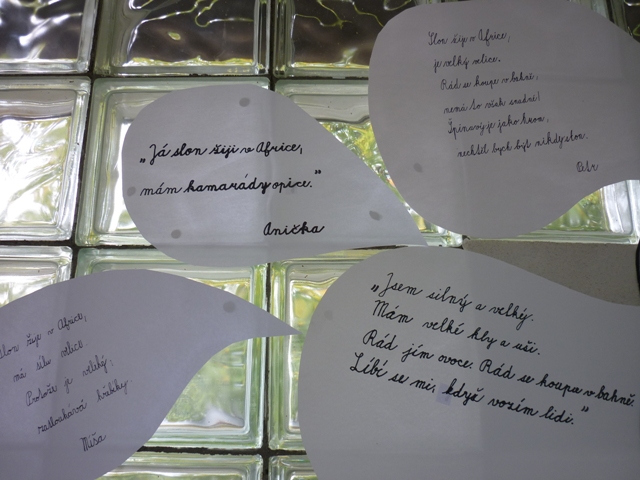 Slon žije v Africe,
je velký velice.
Rád se koupe v bahně,
není to však snadné!
Špinavý je jako
nechtěl bych být nikdy slon.
Petr
„Já slon žiji v Africe,
mám kamarády opice."
Anička
„Jsem silný a velký.
Mám velké kly a uši.
Rád jím ovoce. Rád se koupu v bahně.
Líbí se mi, když vozím lidi."
Slon žije v Africe,
má sílu velice
Protože je veliký,
Míša